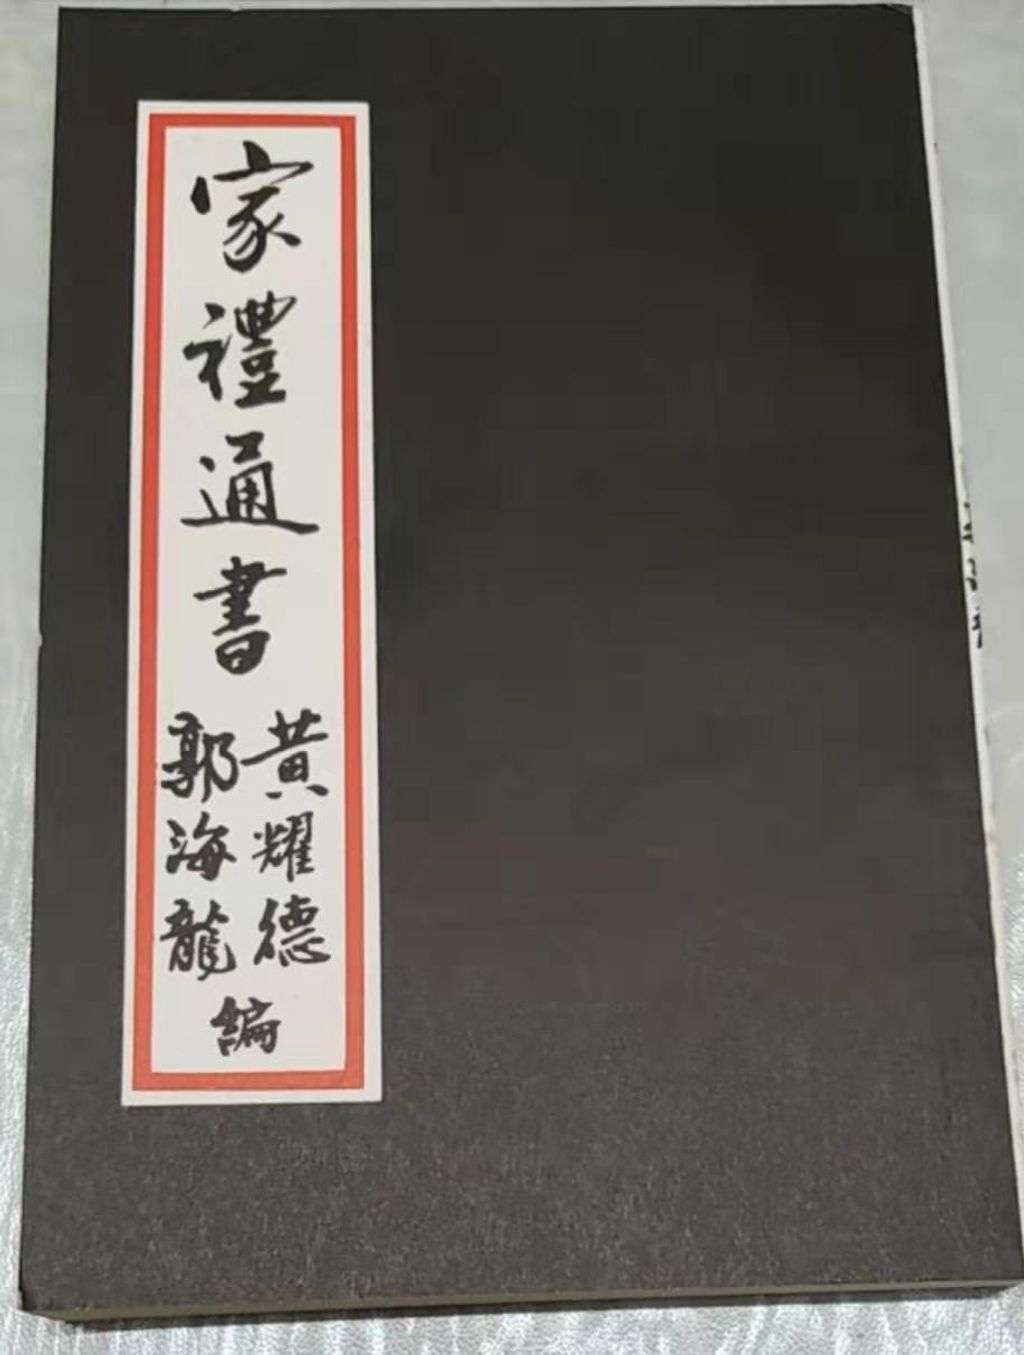 家禮通書
黃耀德
郭海龍
編